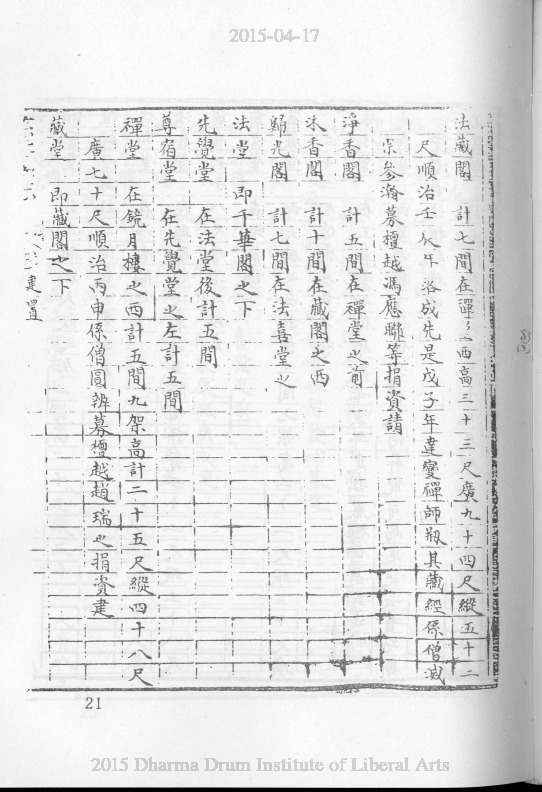 2015-04-17
法藏閣 計七間在禪之西高三十三尺廣九十四尺縱五十二
尺順治壬辰年落成先是戊子年建變禪師剏其藏經係僧減
宗參瀚募檀越馮應聯等捐資請
淨香閣 計五間在禪堂之前
木香閣 計十間在藏閣之西
歸光閣 計七間在法喜堂之
法堂 即千華閣之下
先覺堂 在法堂後計五間
尊宿堂 在先覺堂之左計五間
禪堂 在鏡月樓之西計五間九架高計二十五尺縱四十八尺
廣七十尺順治丙申係僧圓辨募檀越趙瑞之捐資建
藏堂 即藏閣之下
建置
21
2015 Dharma Drum Institute of Liberal Arts